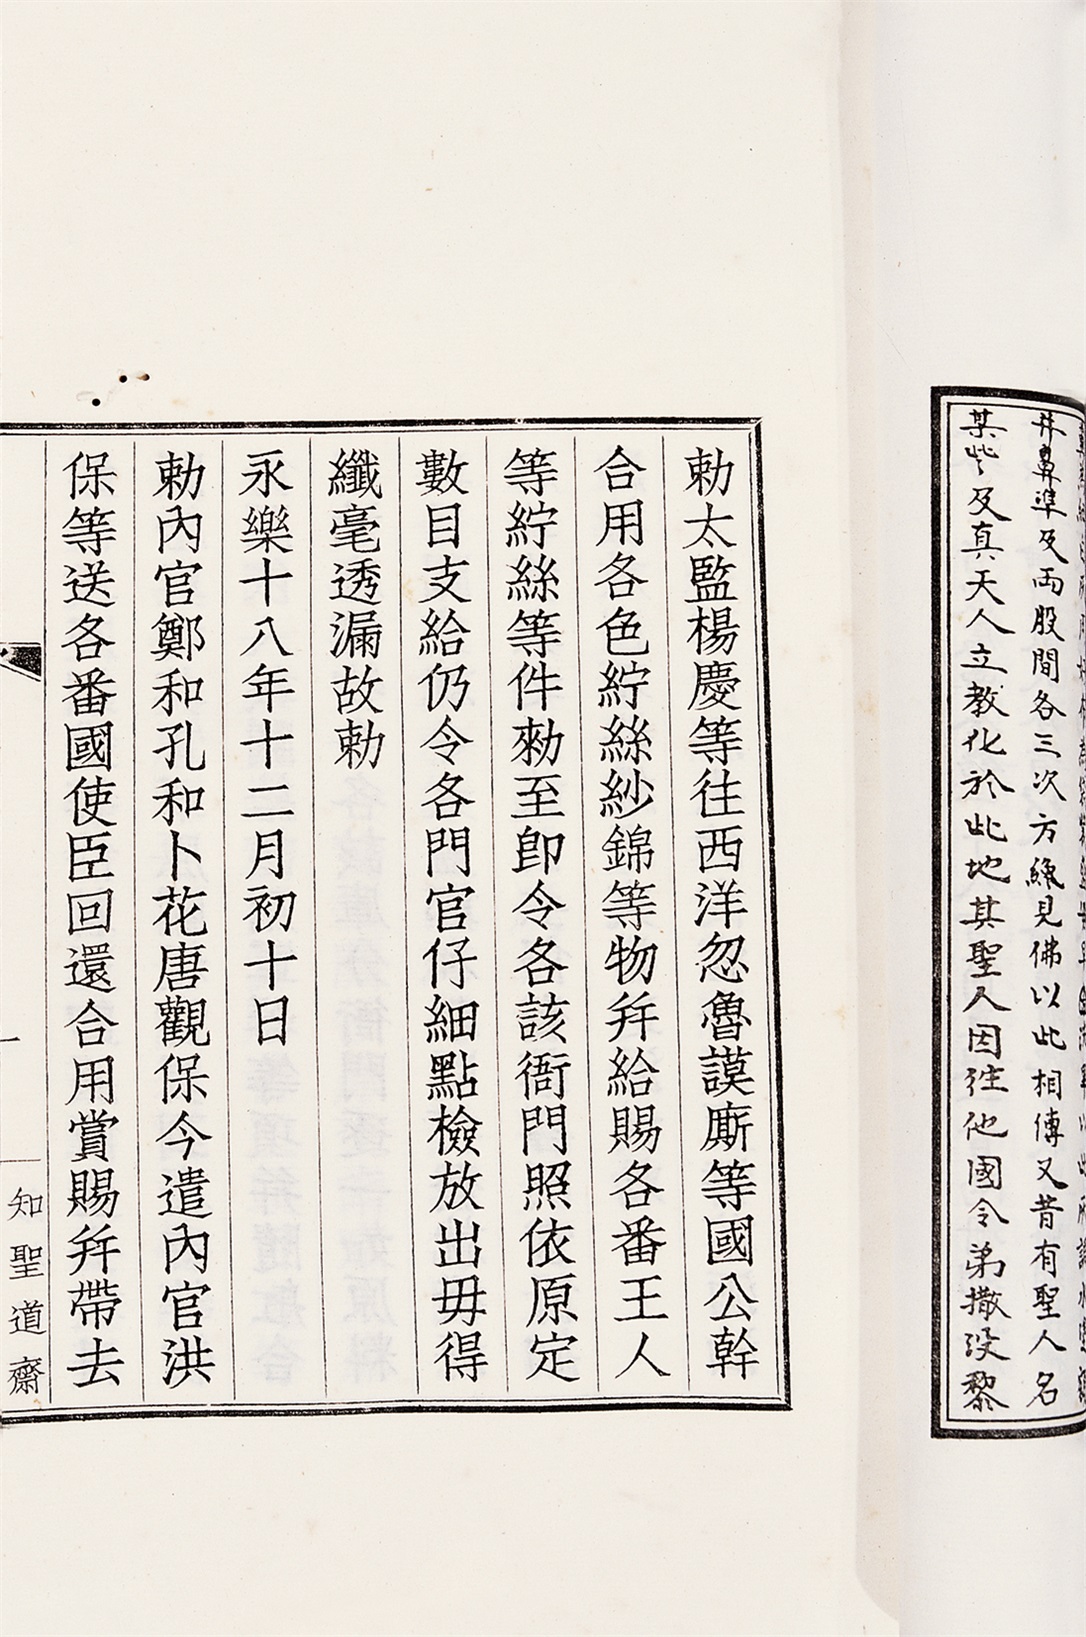 井鼻準及兩股間各三次方纔見佛以此相傳又昔有聖人名
某些々及真天人立教化於此地其聖人因往他國令弟撒没黎
勅太監楊慶等往西洋忽魯謨厮等國公幹
合用各色紵絲紗錦等物并給賜各番王人
等紵絲等件勑至即令各該衙門照依原定
數目支給仍令各門官仔細點檢放出毋得
纖毫透漏故勅
永樂十八年十二月初十日
勅內官鄭和孔和卜花唐觀保今遣內官洪
保等送各番國使臣回還合用賞賜并帶去
一
知聖道齋